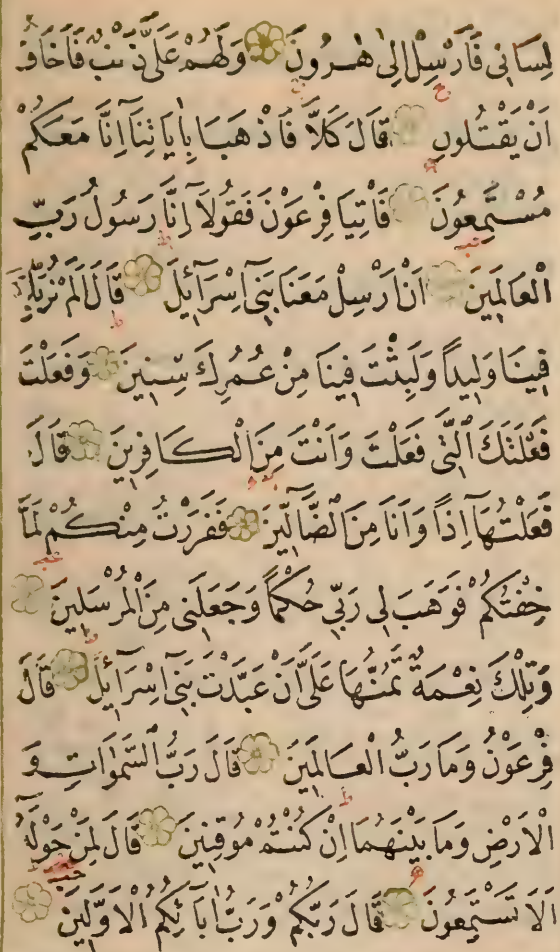 لِسَانِي فَاَرْسِلْ اِلٰى هٰرُونَ وَلَهُمْ عَلَىَّ ذَنْبٌ فَاَخَافُ
اَنْ يَقْتُلُونِ قَالَ كَلَّا فَاذْهَبَا بِاٰيَاتِنَا اِنَّا مَعَكُمْ
مُسْتَمِعُونَ فَاْتِيَا فِرْعَوْنَ فَقُولَآ اِنَّا رَسُولُ رَبِّ
الْعَالَمِينَ اَنْ اَرْسِلْ مَعَنَا بَنِىٓ اِسْرَآئِلَ قَالَ اَلَمْ نُرَبِّكَ
فِينَا وَلِيدًا وَلَبِثْتَ فِينَا مِنْ عُمُرِكَ سِنِينَ وَفَعَلْتَ
فَعْلَتَكَ الَّتِى فَعَلْتَ وَاَنْتَ مِنَ الْكَافِرِينَ قَالَ
فَعَلْتُهَآ اِذًا وَاَنَا مِنَ الضَّآلِّينَ فَفَرَرْتُ مِنْكُمْ لَمَّا
خِفْتُكُمْ فَوَهَبَ لِى رَبِّى حُكْمًا وَجَعَلَنِى مِنَ الْمُرْسَلِينَ
وَتِلْكَ نِعْمَةٌ تَمُنُّهَا عَلَىَّ اَنْ عَبَّدْتَ بَنِىٓ اِسْرَآئِلَ قَالَ
فِرْعَوْنُ وَمَا رَبُّ الْعَالَمِينَ قَالَ رَبُّ السَّمٰوَاتِ وَ
الْاَرْضِ وَمَا بَيْنَهُمَا اِنْ كُنْتُمْ مُوقِنِينَ قَالَ لِمَنْ حَوْلَهُٓ
اَلَا تَسْتَمِعُونَ قَالَ رَبُّكُمْ وَرَبُّ اٰبَآئِكُمُ الْاَوَّلِينَ